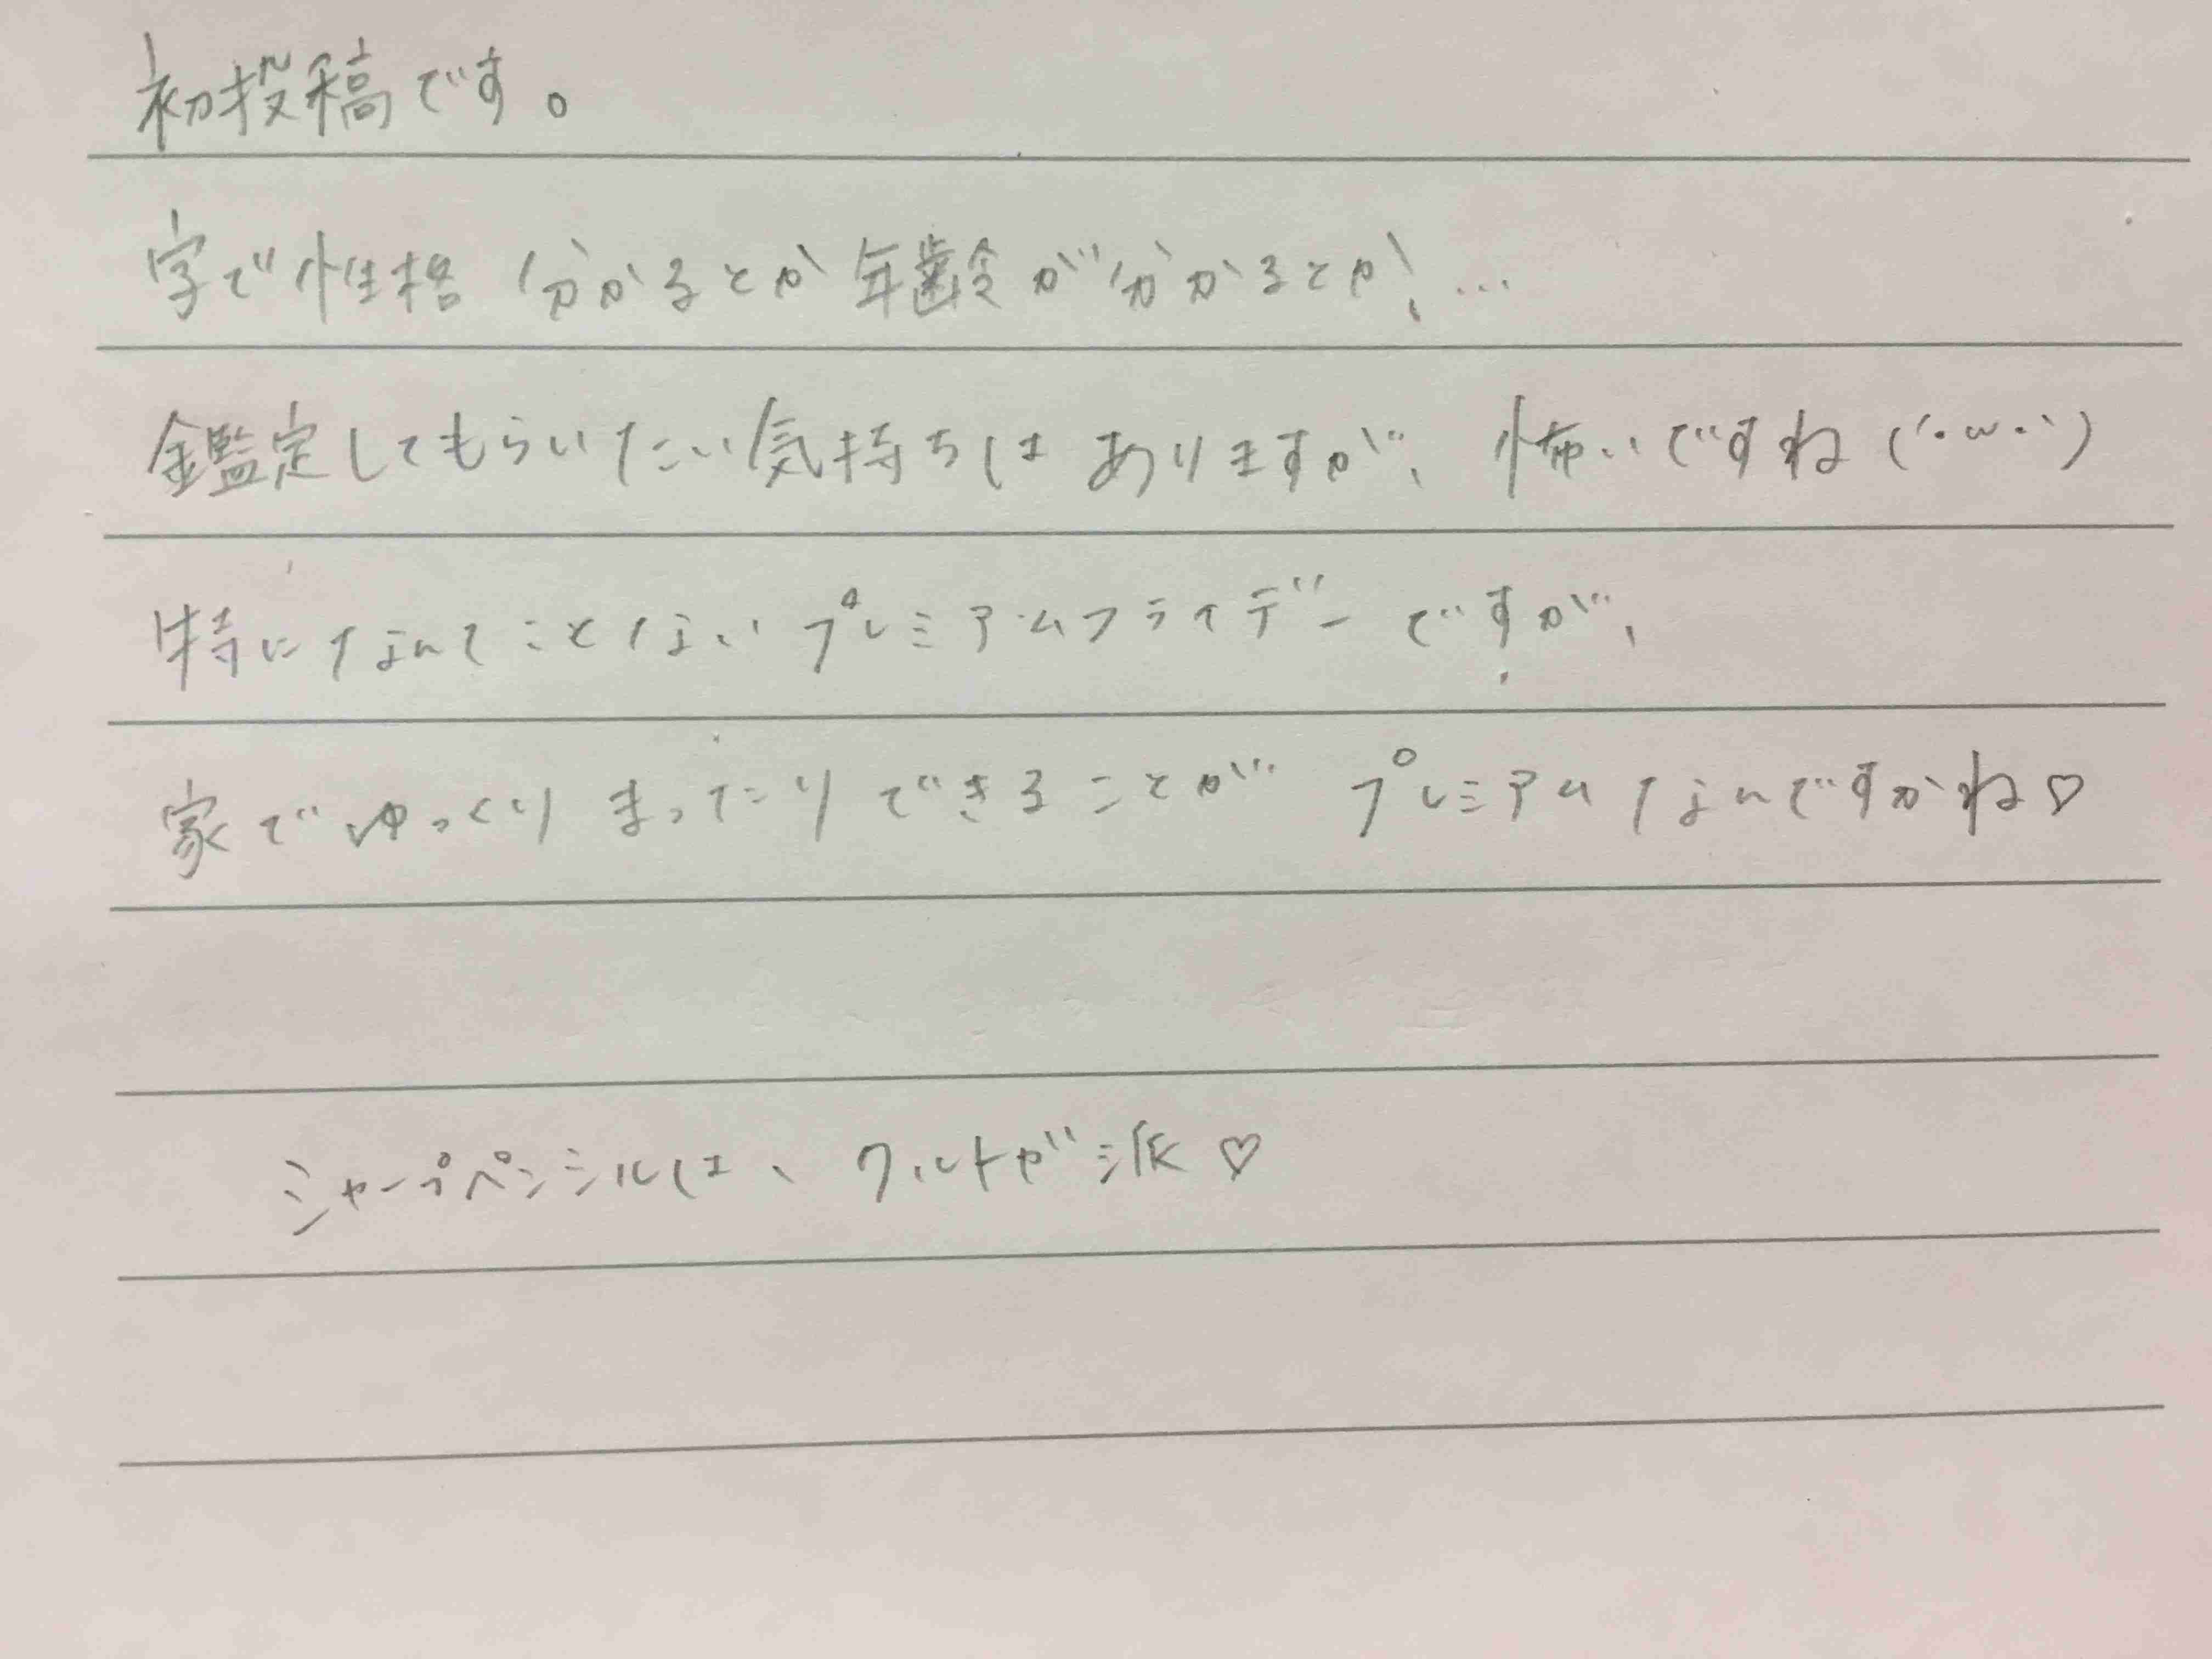 初投稿です。
字で性格分かるとか年齢が分かるとか、…
鑑定してもらいたい気持ちはありますが、怖いですね(´･ω･`)
特になんてことないプレミアムフライデーですが、
家でゆっくりまったりできることがプレミアムなんですかね♡
シャープペンシルは、クルトガ派♡